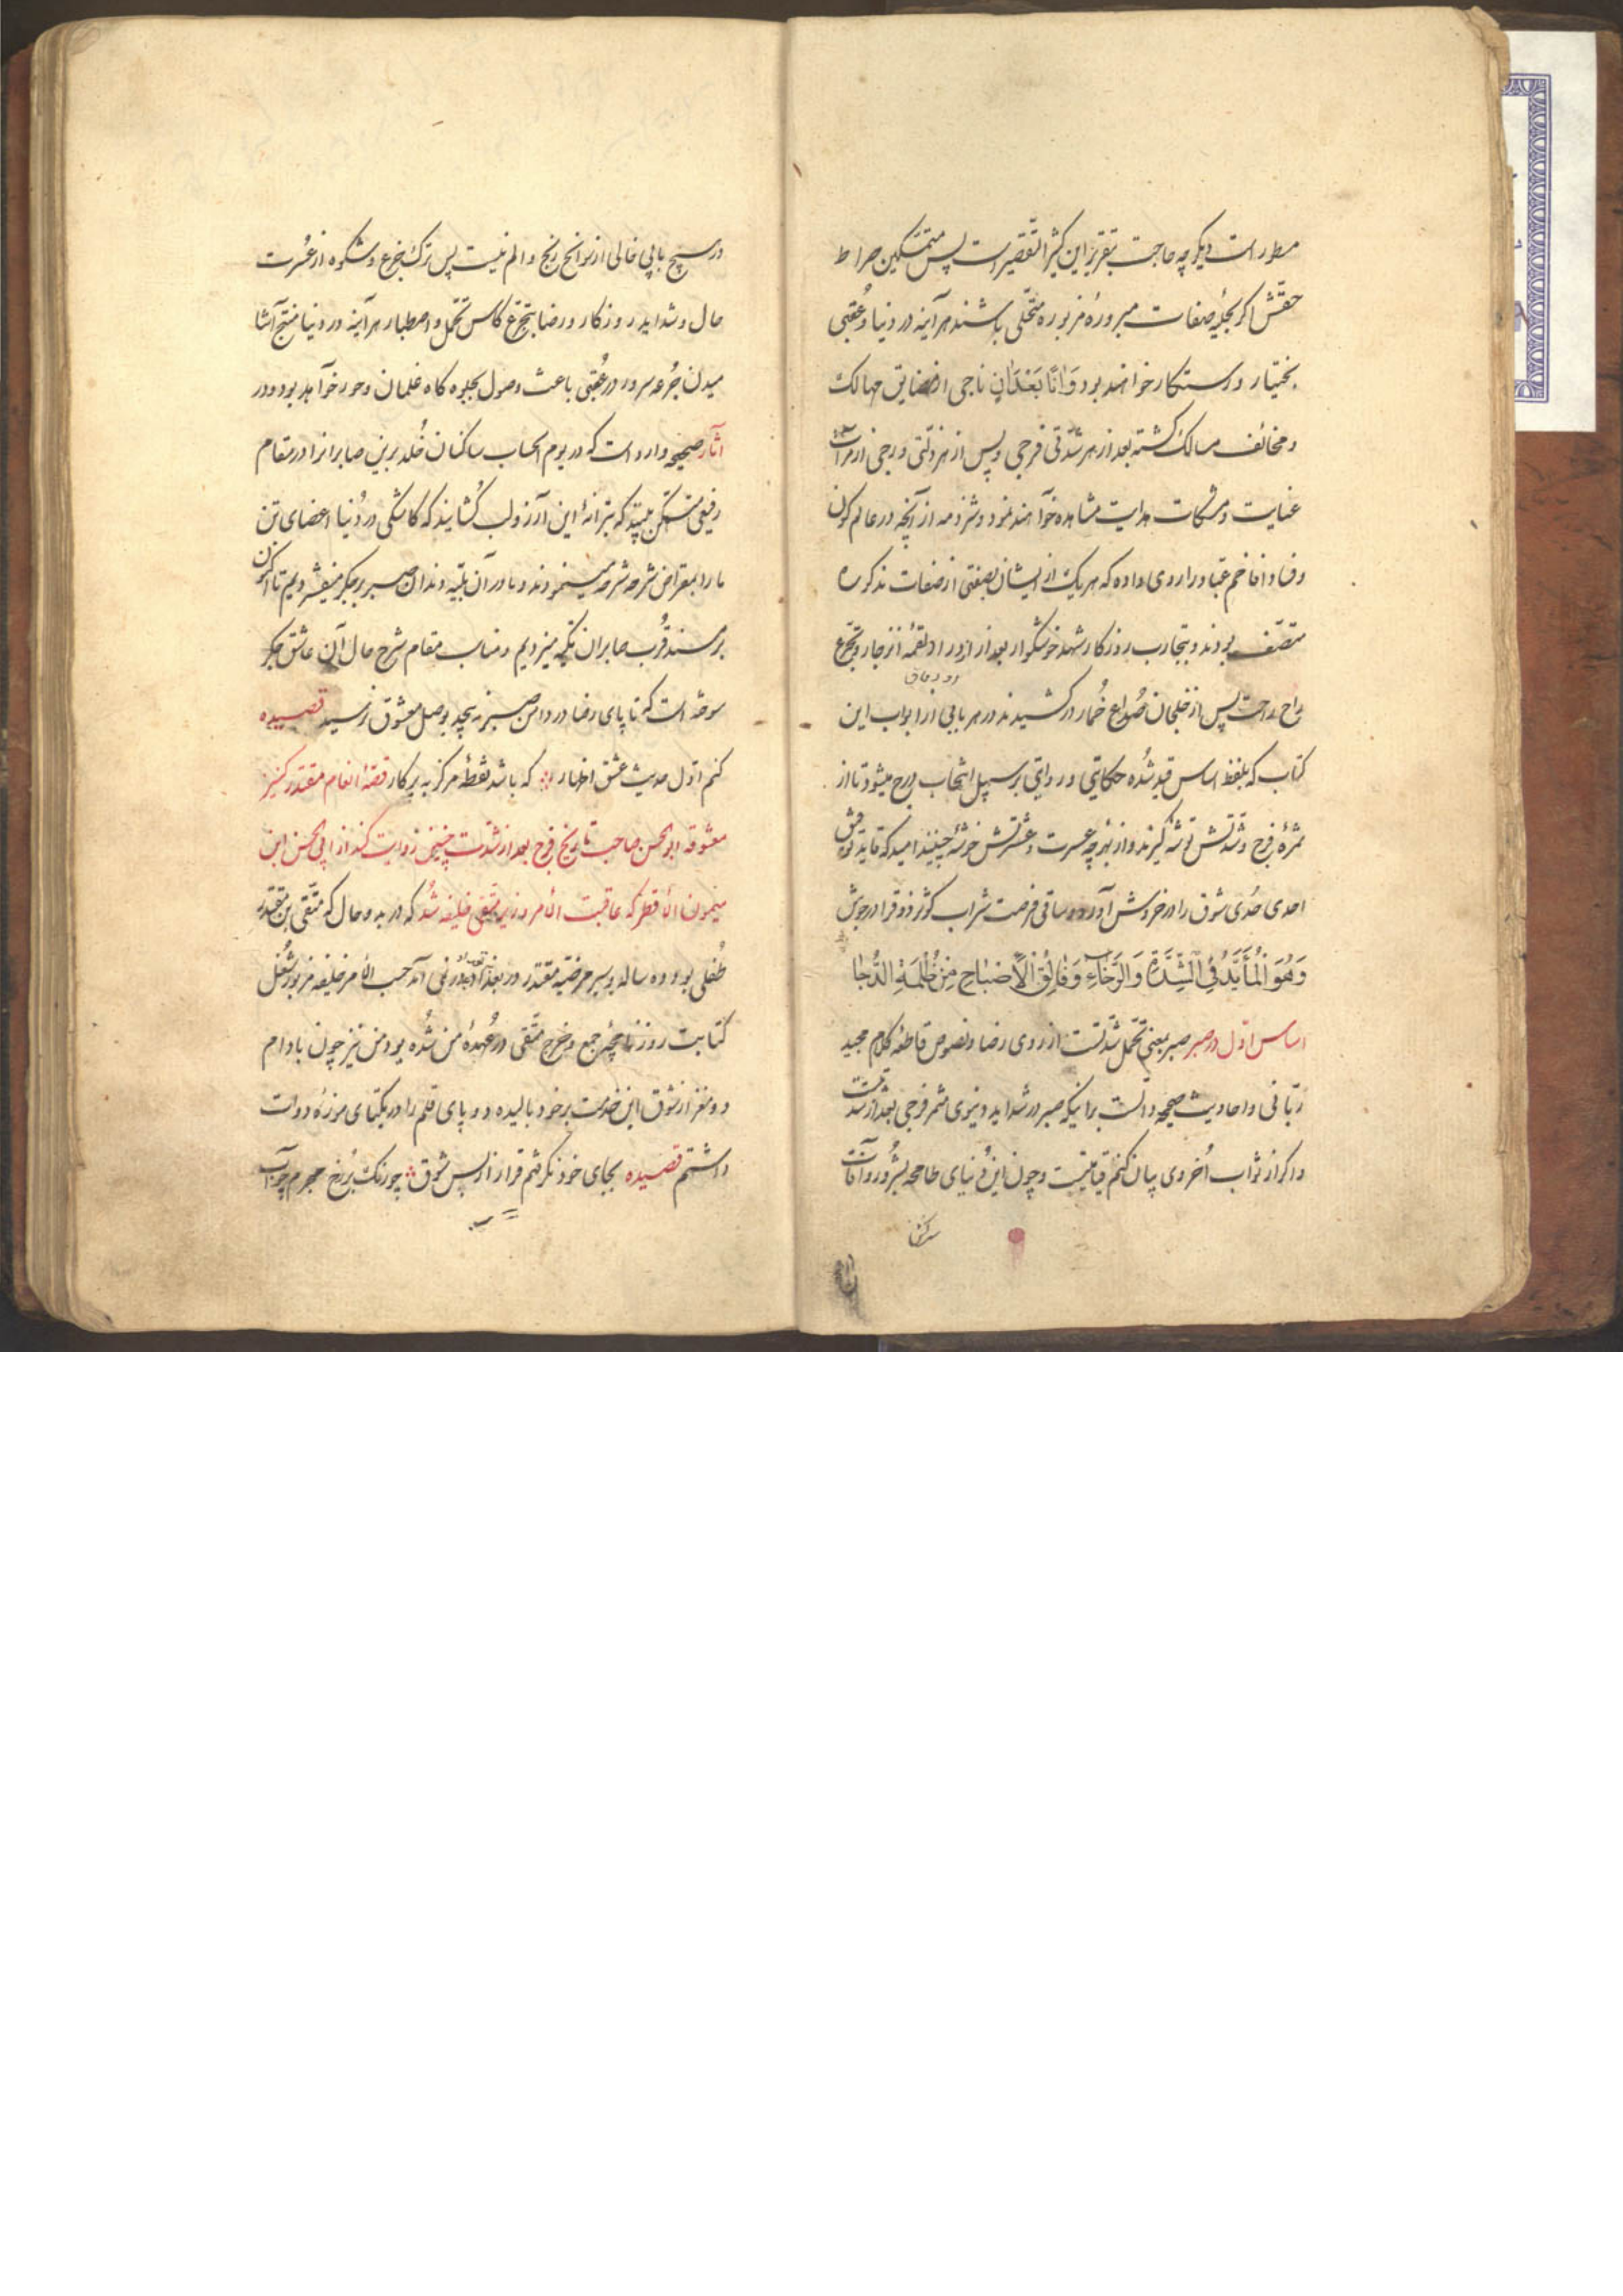 مسطور است دیگر چه حاجت بتقریر این کثیر التقصیر است پس متمسّکین صراط
حقّش اگر بحلیهٔ صفات مبروره مزبوره متحلّی باشند هر آینه در دنیا و عُقبی
بختیار و رستگار خواهند بود وَ اٰناً بَعْدَاٰنٍ ناجی از مضایق مهالک
و مخائف مسالک کشته بعد از هر شدّتی فرجی و پس از هر ذلّتی درجی از مرآت
عنایت و مشکات هدایت مشاهده خوآهند نمود و شرذمه از آنچه در عالم کون
و فساد افاخم عباد را روی داده که هر یک از ایشان بصفتی از صفات مذکوره
متصّف بودند و بتجارب روزکار شهد خوشگوار بعد از ازدراد لقمهٔ انزجار و تجرّع
راح راحت پس از خلجان صُداع خُمار درکشیدند در هر بابی از ابواب این
کتاب که بلفظ اساس قید شُده حکایتی و روایتی بر سبیل انتخاب درج میشود تا از
ثمرهٔ فرح و شدّتش توشه گیرند و از بهر چه عسرت و عشرتش خوشه چینند امید که قاید توفیق
احدی حُدی شوق را در خروش آورد و ساقی فرصت شراب کوثر ذوقرا در جوش
وَهُوَ الْمُأَیَّدُ فِی الشِّدَّةِ وَالرَّخَاءِ وَفَالِقُ الْاَصْبَاحِ مِنْ ظُلْمَةِ الدُّجَا
اساس اوّل در صبر صبر بمعنی تحمّل شدّتست از روی رضا و نصوص قاطعه کلام مجید
ربّانی و احادیث صحیحه دالّست بر اینکه صبر در شداید دنیوی مثمر فرجی بعد از شدّتست
و اگر از ثواب اُخروی بیان کنم قیامتیست و چون این دُنیای طامحه بشُرور و آفات
در هیچ بابی خالی از نوایح رنج و الم نیست پس ترک جزع و شکوه از عُسرت
حال و شداید روزکار و رضا بتجرّع کاس تحمّل و اصطبار هر آینه در دنیا منتج آشا
میدن جُرعه سرور و در عُقبی باعث وصول بجلوه کاه غلمان و حور خوآهد بود و در
آثار صحیحه وارد است که در یوم الحساب ساکنان خُلد برین صابرانرا در مقام
رفیعی متمکّن بینند که بترانهٔ این آرزو لب کُشایند که کاشکی در دُنیا اعضای تن
ما را بمقراض شرحه شرحه مینمودند و ما در آن بلیّه دندان صبر بر جکر میفشردیم تا اکنون
بر مسند قُرب صابران تکیه میزدیم و مناسب مقام شرح حال آن عاشق جکر
سوخته است که تا پای رضا در دامن صبر نه پیچید بوصل معشوق نرسید قصیده
کنم اوّل حدیث عشق اظهار که باشد نقطهٔ مرکز به پرکار قصّهٔ انعام مقتدر کنیز
معشوقه ابوالحسن صاحب تاریخ فرج بعد از شدّت چنین روایت کند از ابی الحسن ابن
میمون الافطر که عاقبت الامر وزیر متّقی خلیفه شُد که در بدو حال که متّقی بن مقتدر
طفلی بود ده ساله و بسر مرضیّه مقتدر در بغداد آمد حسب الامر خلیفه مزبور شغل
کتابت روزنامچهٔ جمع و خرج متّقی در عُهدهٔ من شُده بود من نیز چون بادام
دو مغز از شوق این خدمت بر خود بالیده دو پای قلم را در یکتای موزهٔ دوات
داشتم قصیده بجای خود نکرفتم قرار از بس شوق چو رنک بر رُخ مجرم چو آب